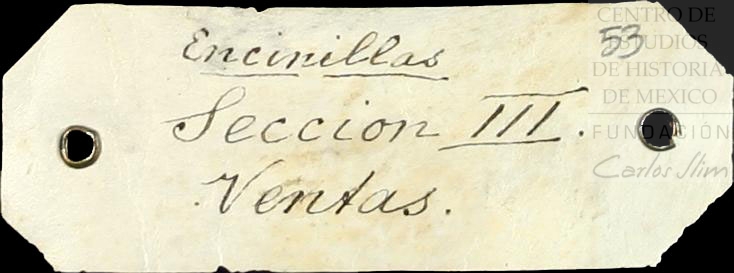 CENTRO DE
53
ESTUDIOS
DE HISTORIA
DE MEXICO
FUNDACIÓN
Carlos Slim
Encinillas
Seccion III.
Ventas.